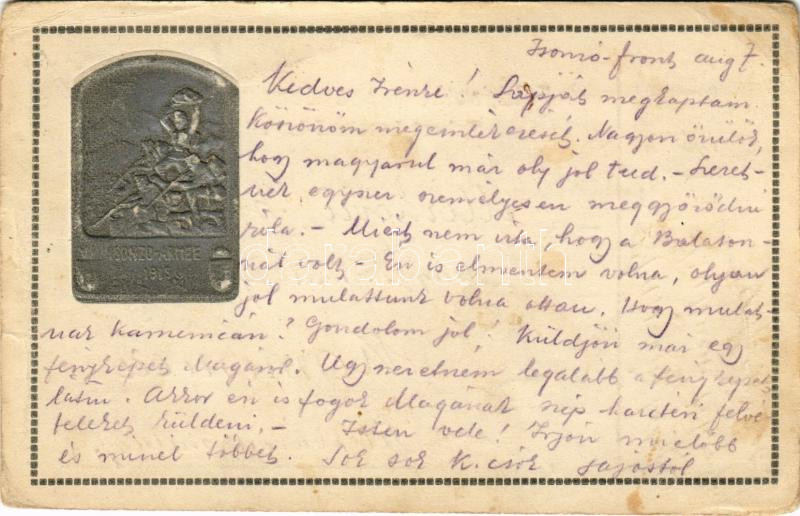 Isonzó-front aug 7.
Kedves Irénke! Lapját megkaptam.
Köszönöm megemlékezését. Nagyon örülök,
hogy magyarul már oly jól tud. - Szeret-
nék egyszer személyesen meggyőződni
róla. - Miért nem írta, hogy a Balaton-
nál volt - Én is elmentem volna, olyan
jól mulattunk volna ottan. Hogy mulat-
nak? Gondolom jól! Küldjön már egy
fényképet Magáról. Úgy szeretném legalább a fényképét
látni. Akkor én is fogok Magának szép harctéri felvé-
teleket küldeni. - Isten vele! Írjon mielőbb
és minél többet. Sok sok k. csók Lajostól
ISONZO-ARMEE
1915
darabanth